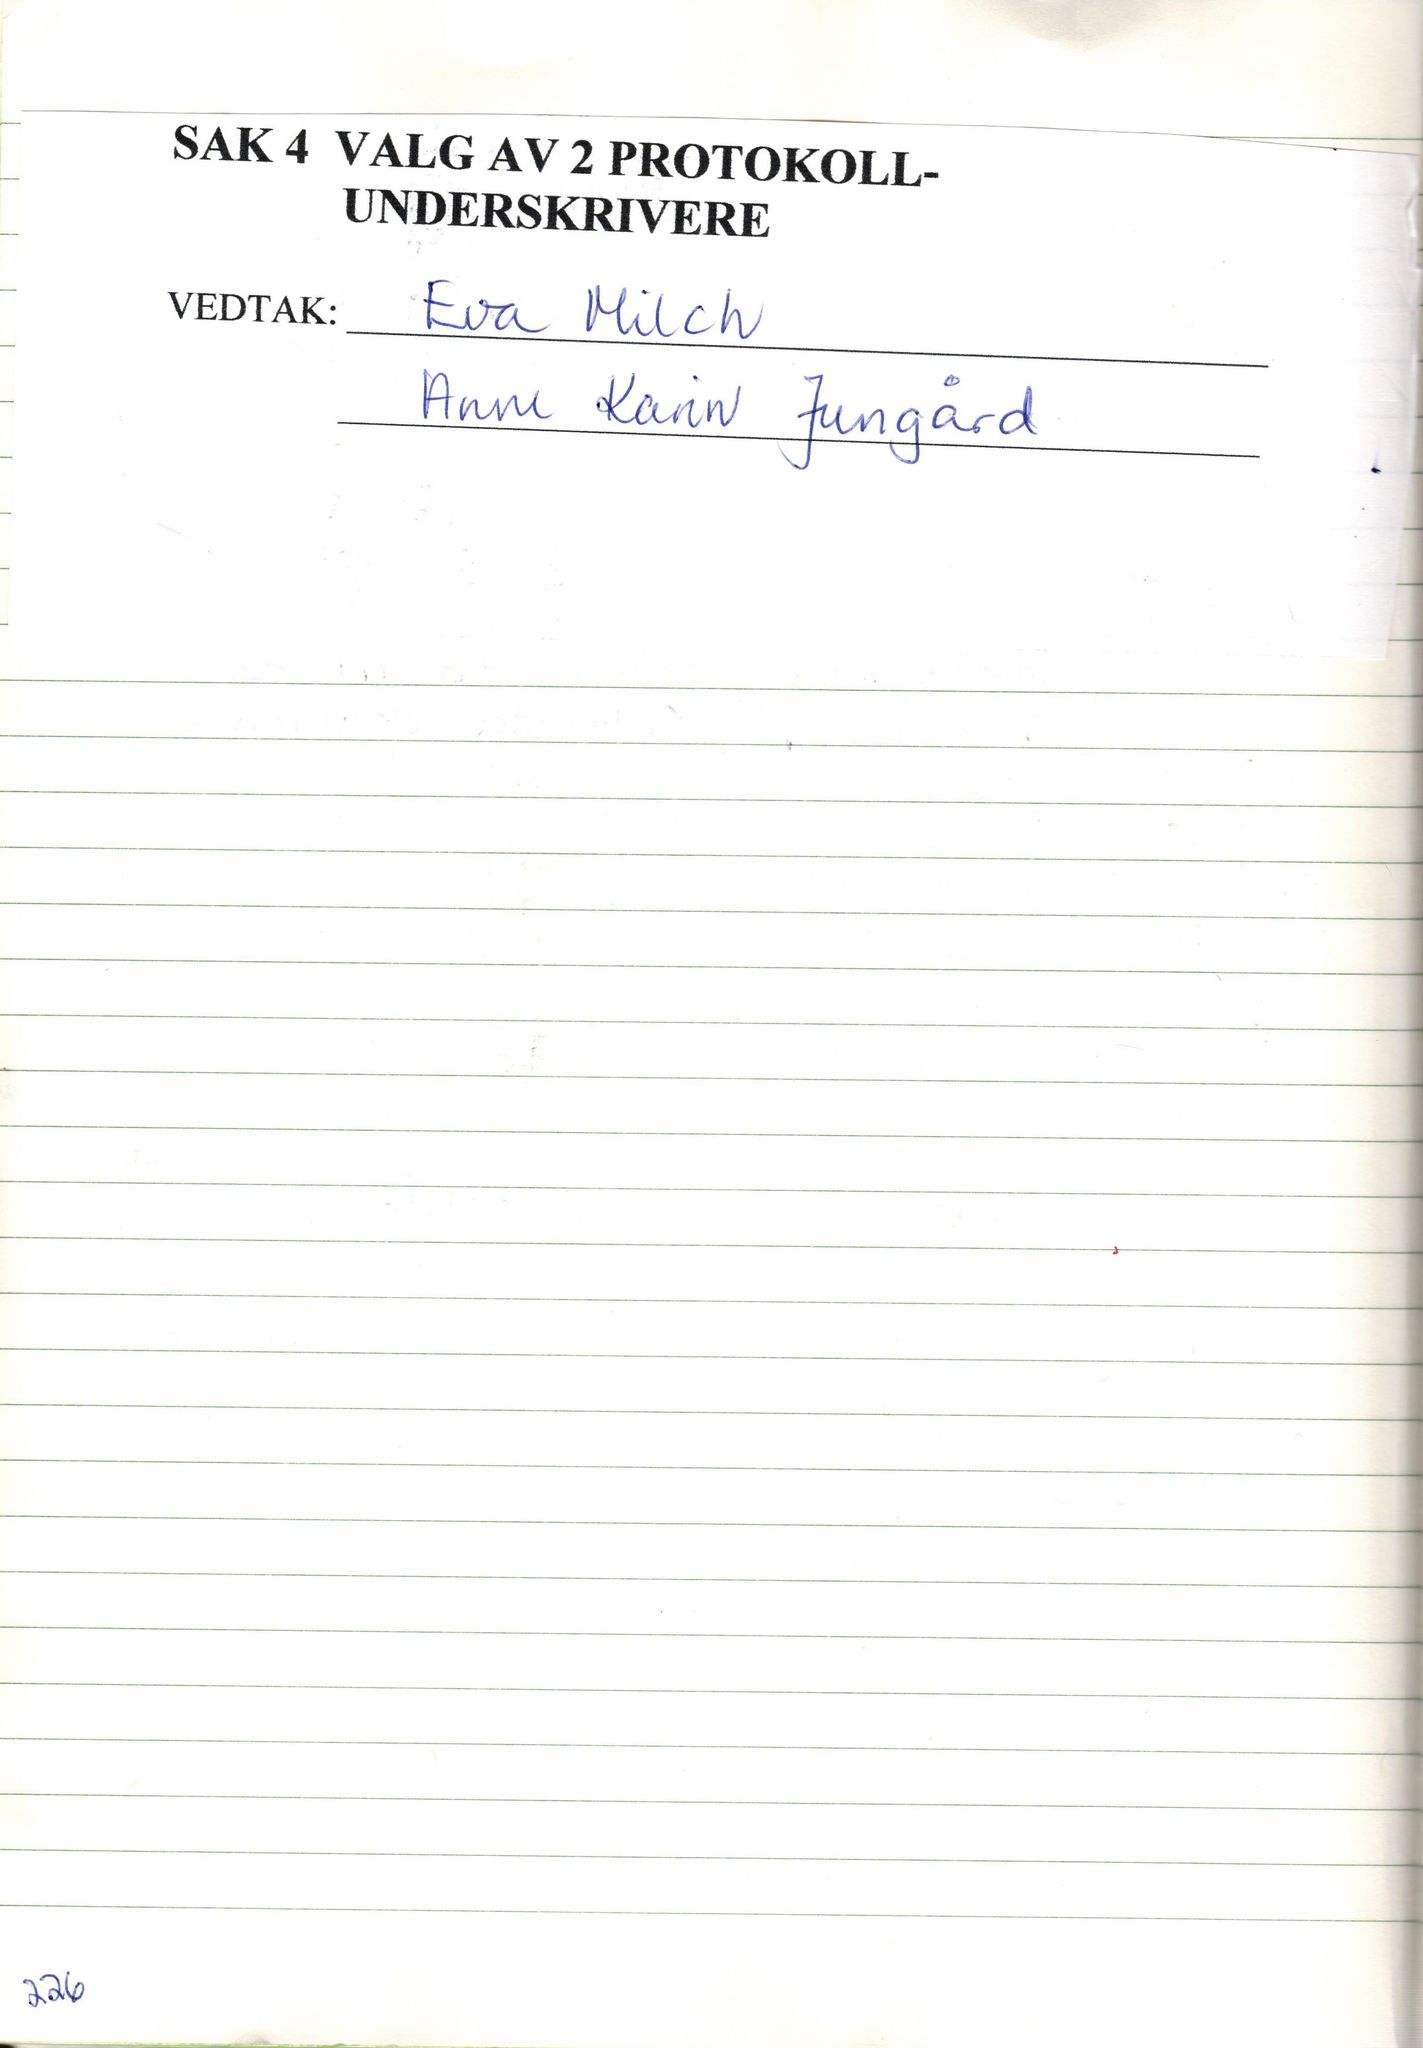 SAK 4 VALG AV 2 PROTOKOLL-
UNDERSKRIVERE
VEDTAK: Eva Milch
Anne Karin Jungård
226